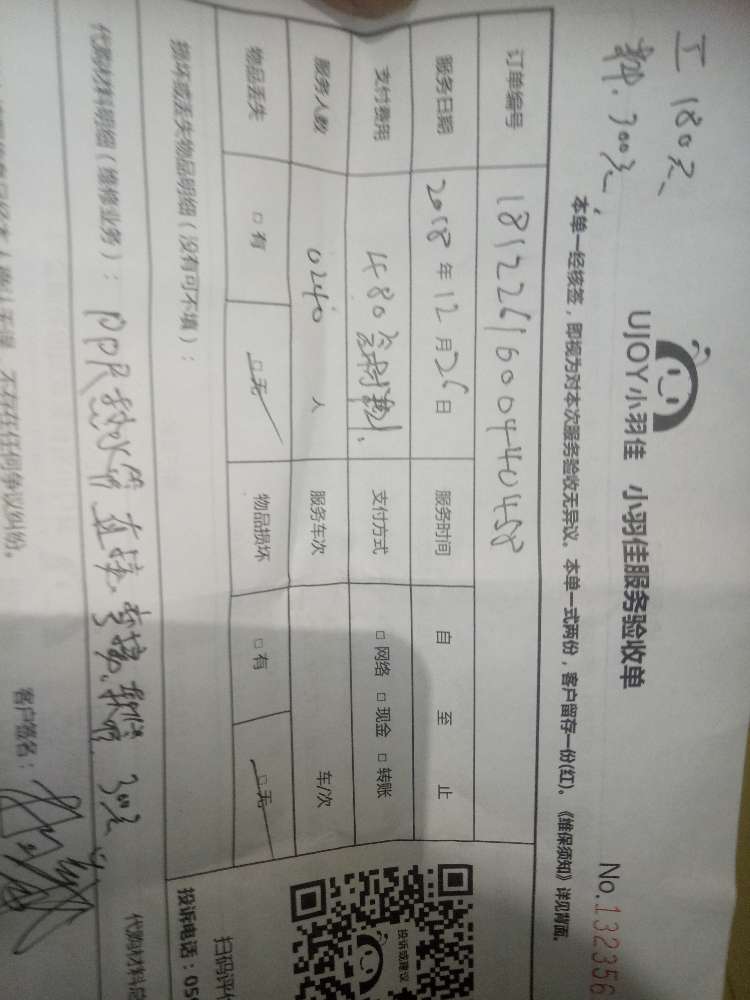 工 180元
料. 300元
UJOY小羽佳 小羽佳服务验收单
No.132356
本单一经核签，即视为对本次服务验收无异议。本单一式两份，客户留存一份(红)。《维保须知》详见背面。
订单编号 18122616000440458
服务日期 2018年12月26日 服务时间 自 至 止
支付费用 480 支付方式 □网络 □现金 □转账
服务人数 0240 人 服务车次 车/次
物品丢失 □有 □无 物品损坏 □有 □无
损坏或丢失物品明细（没有可不填）：
代购材料明细（维修业务）：PPR热水管 直接 弯接 300元
客户签名：
投诉或建议
扫码评
投诉电话：05
代购材料
不存在任何争议纠纷。